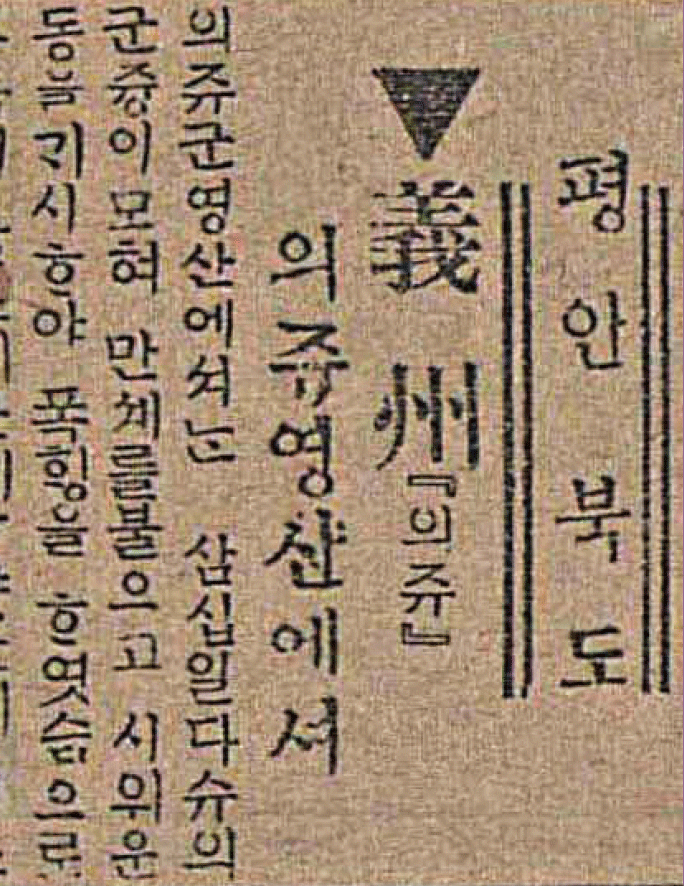 평안북도
▼義州『의쥬』
의쥬영산에셔
의쥬군영산에셔ᄂᆞᆫ 삼십일다슈의
군즁이모혀 만셰를불으고 시위운
동을 ᄀᆡ시ᄒᆞ야 폭ᄒᆡᆼ을 ᄒᆞ엿슴으로